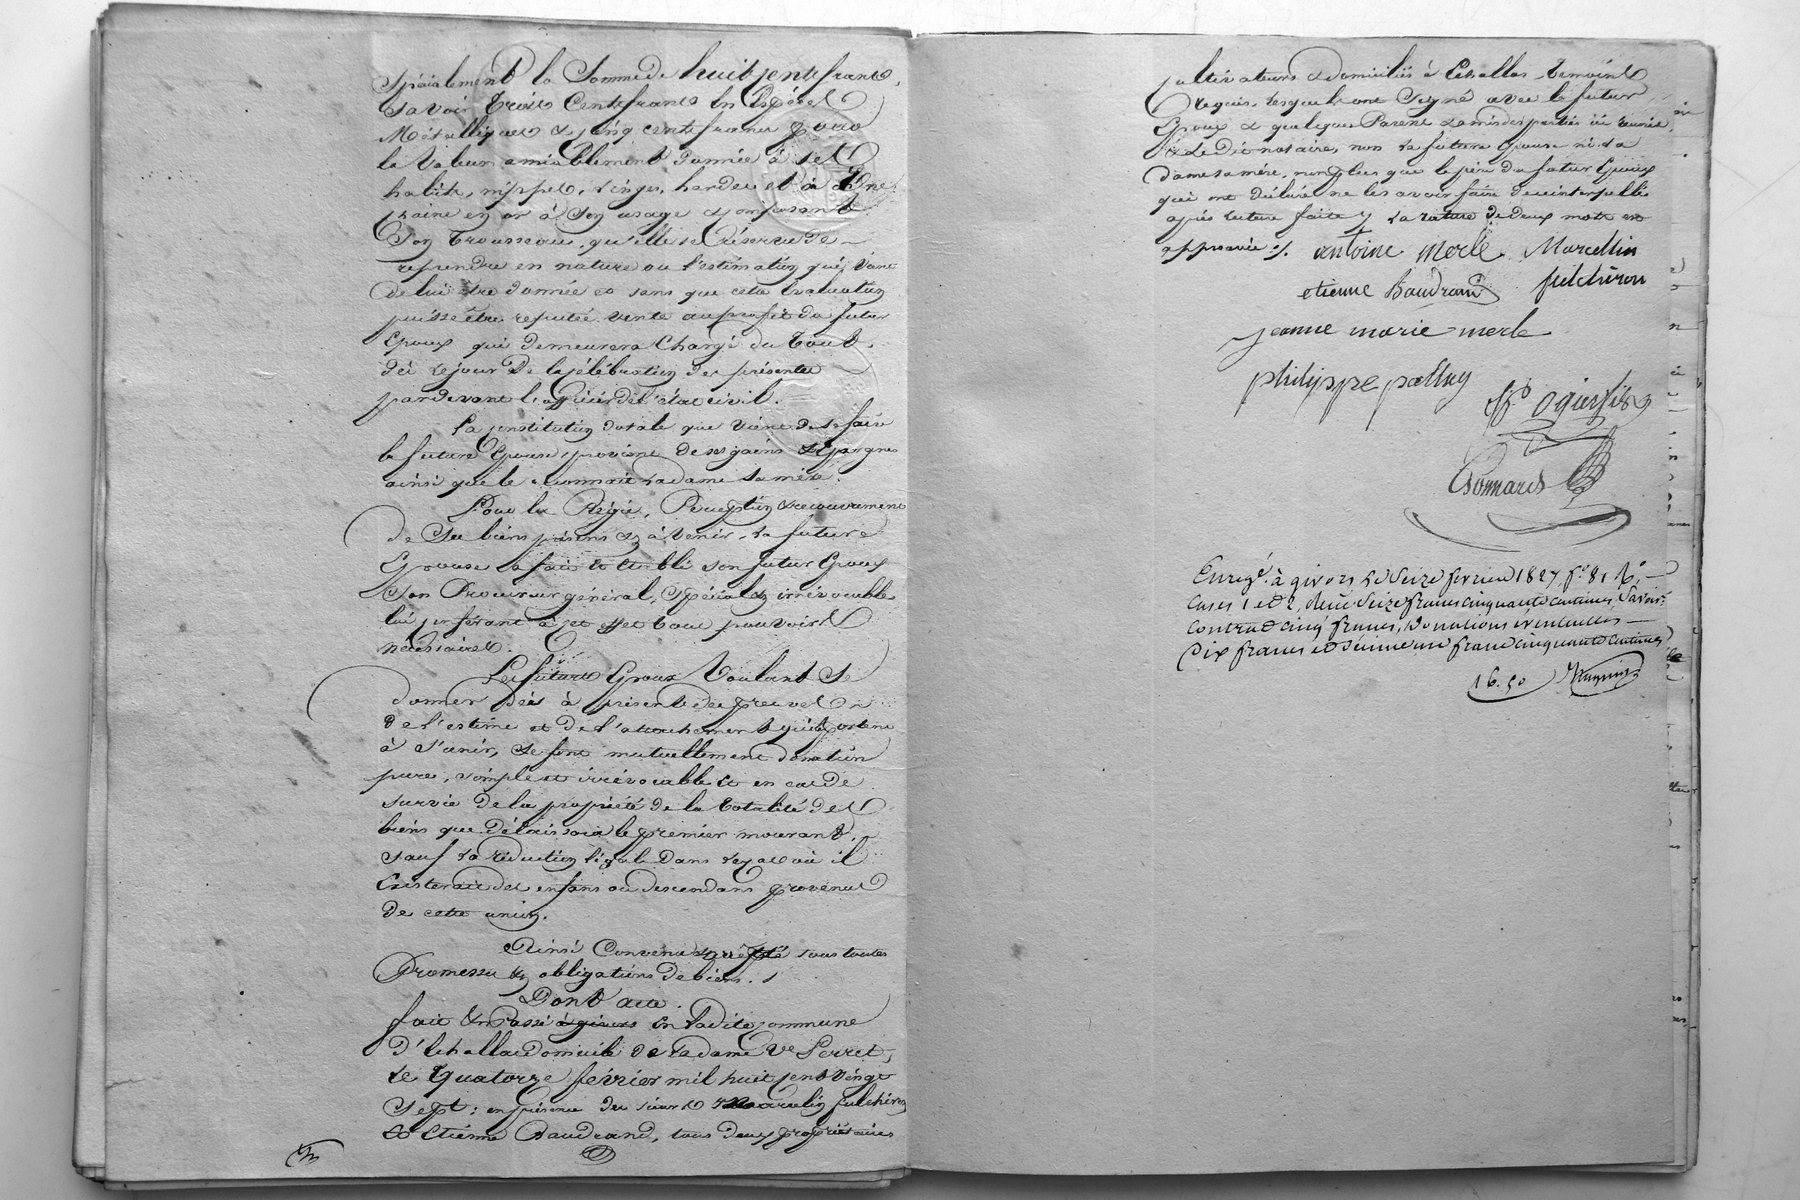 Spécialement la Somme de huit cent francs,
Savoir Trois Cents francs En Espèces
Métalliques & cinq cents francs pour
la Valeur amiablement donnée à ses
habits, nippes, Linges, hardes et à Une
chaine en or à son usage & composant
Son Trousseau, qu'elle se Réserve de
reprendre en nature ou l'estimation qui Vient
de lui être donnée et sans que cette Evaluation
puisse être reputée Vente au profit du futur
Epoux qui demeurera Chargé du Tout,
dès le jour De la célébration des présentes
pardevant l'officier de l'état civil.
La constitution dotale que Vient de se faire
la future Epouse, provient De ses gains & Epargnes
ainsi que le reconnait la dame sa mère.
Pour la Régie, Perception & recouvrement
de Ses biens présens & à Venir, La future
Epouse a fait et établi son futur Epoux
Son Procureur général, Spécial & irrévocable
lui conférant à cet effet tous pouvoirs
nécessaires.
Les futurs Epoux Voulant Se
donner dès à présent des preuves
De l'estime et De l'attachement qu'ils portent
à s'unir, Se font mutuellement donation
pure, simple et irrévocable & en cas De
survie De la propriété De la totalité Des
biens que Délaissera le premier mourant,
sauf La réduction légale Dans le cas où il
Existerait des enfans ou descendans provenus
De cette union.
Ainsi Convenu & sous toutes
Promesses & obligations De biens.
Dont acte.
fait & Passé à givors En Ladite commune
D'Echallas domicile De La dame Ve Serret,
Le Quatorze février mil huit cent Vingt
Sept: en présence des sieurs Marcelin fulchiron
& Etienne Baudrand, tous deux propriétaires
cultivateurs & domiciliés à Echallas Témoins
Requis, Lesquels ont Signé avec le futur
Epoux & quelques Parens & amis des parties ici réunies,
& Le dit notaire, non La future Epouse ni La
dame sa mère, non plus que le père du futur Epoux
qui ont déclaré ne les avoir faire de ce interpellés
après lecture faite / La rature de deux mots est
approuvée /. antoine merle Marcellin
etienne Baudrand fulchiron
jeanne marie merle
philippe pattuy
ogier fils
Bonnard
Enregé. à givors Le Seize fevrier 1827 fo. 81 Ro.
cases 1 et 2, Reçu Seize francs cinquante centimes, Savoir:
contrat cinq francs, Donations eventuelles
Dix francs et Dixieme un franc cinquante centimes
16.50